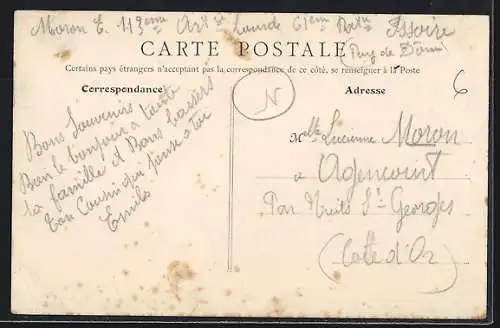 Moron E. 113eme Art ie Lourde 61em Bat n Issoire
(Puy de Dôme)
CARTE POSTALE
Certains pays étrangers n'acceptant pas la correspondance de ce côté, se renseigner à la Poste
Correspondance
Bons Souvenirs
Bien le bonjour à toute
ta famille et Bons baisers
Ton Cousin qui pense à toi
Emile
N
6
Adresse
Melle Lucienne Moron
à Agencourt
Par Nuits St-Georges
(Côte d'Or)